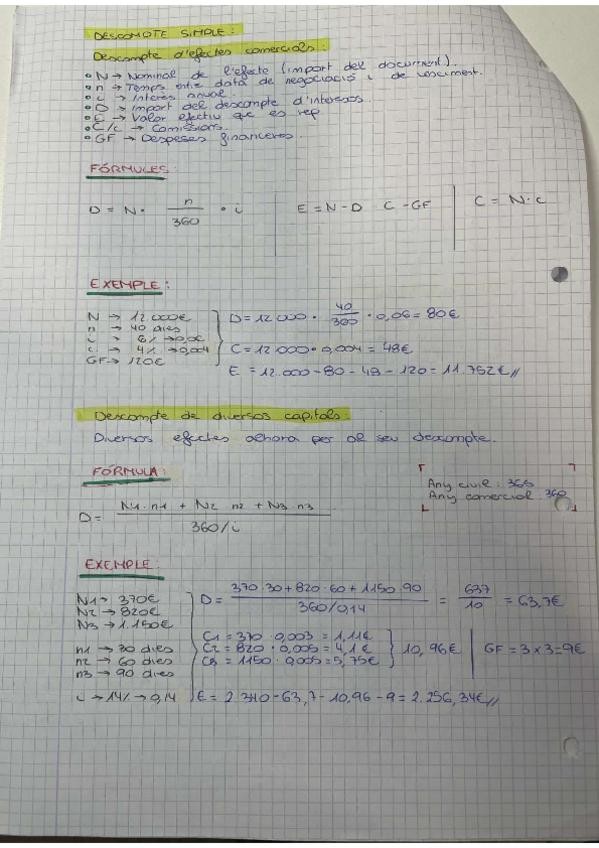 DESCOMPTE SIMPLE:
Descompte d'efectes comercials:
• N → Nominal de l'efecte (import del document).
• n → Temps entre data de negociació i de venciment.
• i → Interès anual.
• D → Import del descompte d'interesos.
• E → Valor efectiu que es rep
• C/c → Comissions.
• GF → Despeses financeres.
FÓRMULES:
D = N · n/360 · i | E = N - D C - GF | C = N · c
EXEMPLE:
N → 12.000€
n → 40 dies
i → 6% → 0,06
c → 4% → 0,004
GF → 120€
D = 12.000 · 40/360 · 0,06 = 80€
C = 12.000 · 0,004 = 48€
E = 12.000 - 80 - 48 - 120 = 11.752€//
Descompte de diversos capitals:
Diversos efectes alhora per al seu descompte.
FÓRMULA:
D = N1 · n1 + N2 · n2 + N3 · n3 / 360/i
Any civil: 365
Any comercial: 360
EXEMPLE:
N1 → 370€
N2 → 820€
N3 → 1.150€
n1 → 30 dies
n2 → 60 dies
n3 → 90 dies
i → 14% → 0,14
D = 370·30 + 820·60 + 1150·90 / 360/0,14 = 637/10 = 63,7€
C1 = 370 · 0,003 = 1,11€
C2 = 820 · 0,005 = 4,1€
C3 = 1150 · 0,005 = 5,75€
10,96€ | GF = 3 x 3 = 9€
E = 2.340 - 63,7 - 10,96 - 9 = 2.256,34€//